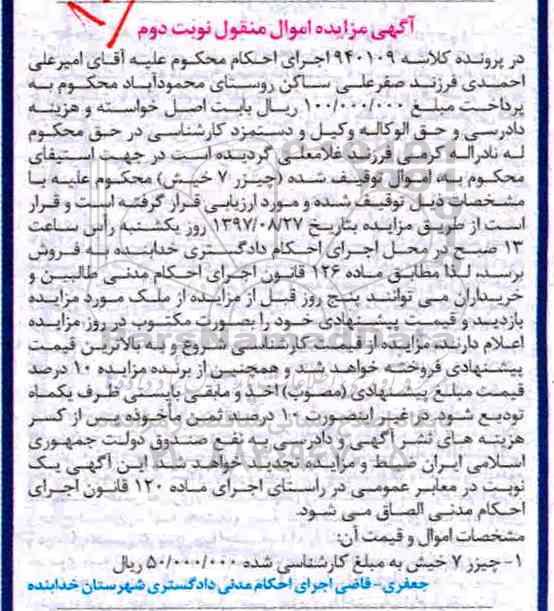 آگهی مزایده اموال منقول نوبت دوم
در پرونده کلاسه ۹۴۰۱۰۹ اجرای احکام محکوم علیه آقای امیرعلی
احمدی فرزند صفرعلی ساکن روستای محمودآباد محکوم به
پرداخت مبلغ ۱۰۰/۰۰۰/۰۰۰ ریال بابت اصل خواسته و هزینه
دادرسی و حق الوکاله وکیل و دستمزد کارشناسی در حق محکوم
له نادراله کرمی فرزند غلامعلی گردیده است در جهت استیفای
محکوم به، اموال توقیف شده (چیزر ۷ خیش) محکوم علیه با
مشخصات ذیل توقیف شده و مورد ارزیابی قرار گرفته است و قرار
است از طریق مزایده بتاریخ ۱۳۹۷/۰۸/۲۷ روز یکشنبه رأس ساعت
۱۳ صبح در محل اجرای احکام دادگستری خدابنده به فروش
برسد، لذا مطابق ماده ۱۲۶ قانون اجرای احکام مدنی طالبین و
خریداران می توانند پنج روز قبل از مزایده از ملک مورد مزایده
بازدید و قیمت پیشنهادی خود را بصورت مکتوب در روز مزایده
اعلام دارند، مزایده از قیمت کارشناسی شروع و به بالاترین قیمت
پیشنهادی فروخته خواهد شد و همچنین از برنده مزایده ۱۰ درصد
قیمت مبلغ پیشنهادی (مصوب) اخذ و مابقی بایستی ظرف یکماه
تودیع شود در غیر اینصورت ۱۰ درصد ثمن مأخوذه پس از کسر
هزینه های نشر آگهی و دادرسی به نفع صندوق دولت جمهوری
اسلامی ایران ضبط و مزایده تجدید خواهد شد این آگهی یک
نوبت در معابر عمومی در راستای اجرای ماده ۱۲۰ قانون اجرای
احکام مدنی الصاق می شود.
مشخصات اموال و قیمت آن:
۱- چیزر ۷ خیش به مبلغ کارشناسی شده ۵۰/۰۰۰/۰۰۰ ریال
جعفری- قاضی اجرای احکام مدنی دادگستری شهرستان خدابنده